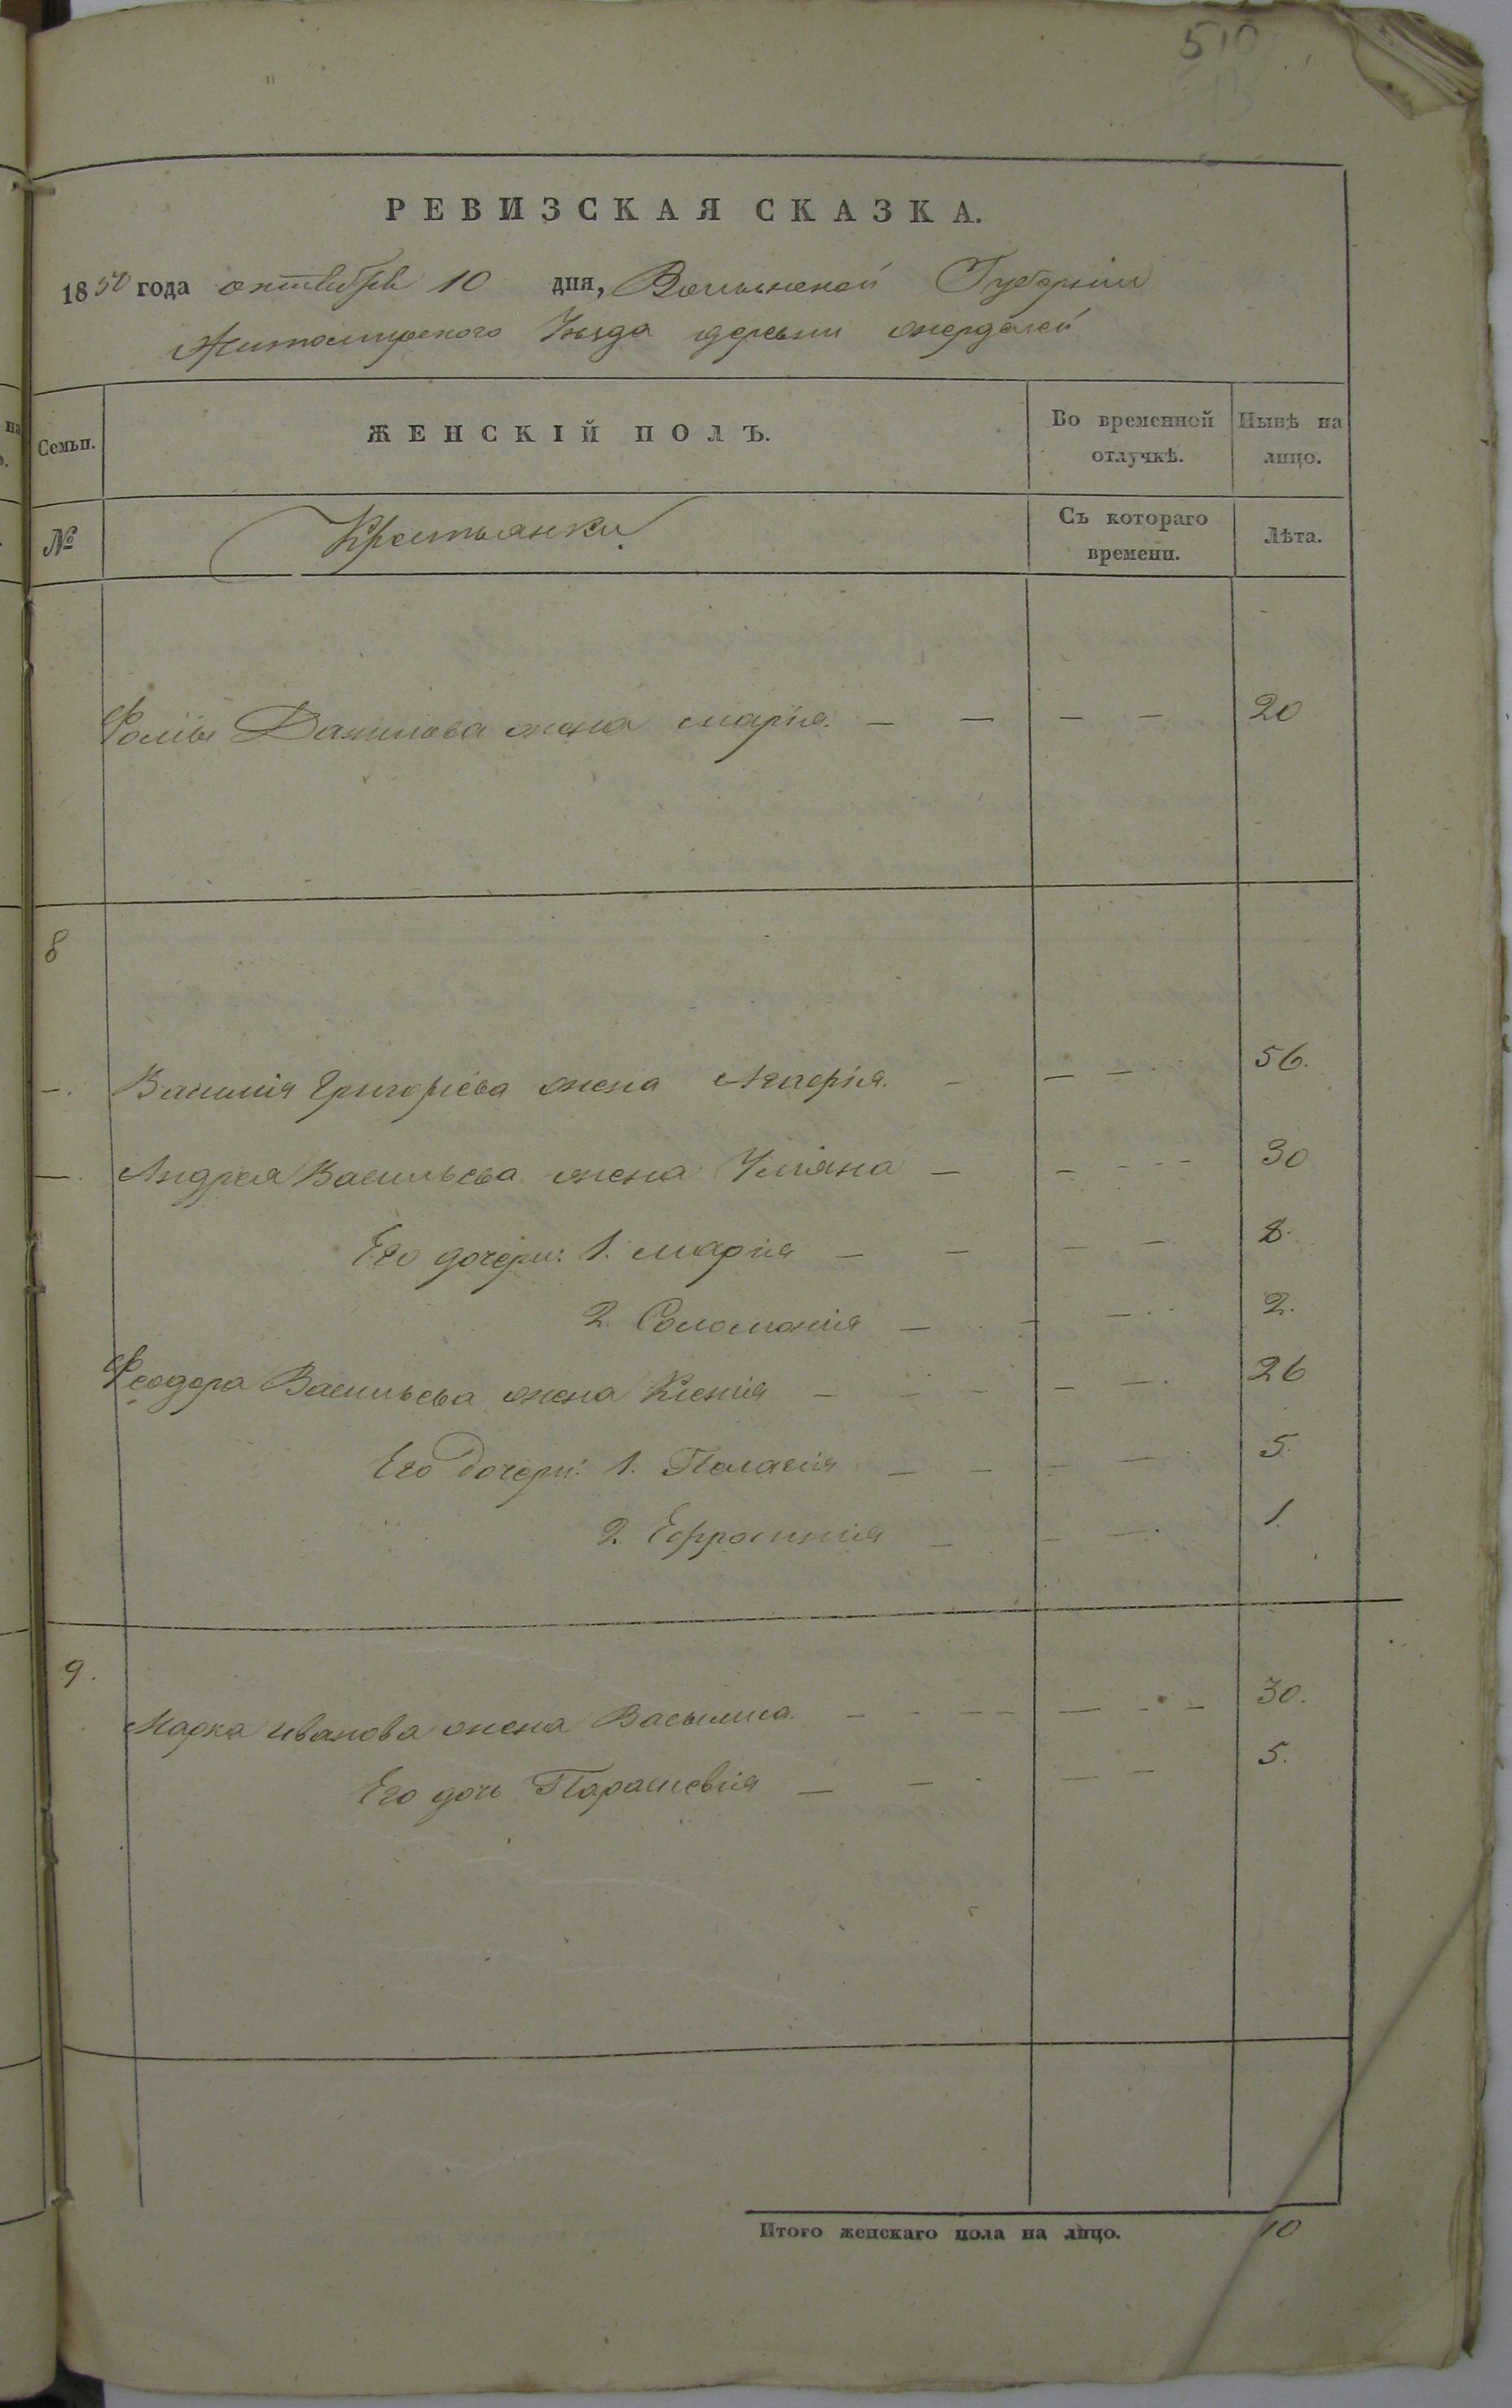 510
РЕВИЗСКАЯ СКАЗКА.
1850 года октября 10 дня, Волынской Губерніи
Житомирского Уезда деревни жерделей
Семьи. ЖЕНСКІЙ ПОЛЪ. Во временной отлучкѣ. Нынѣ на лицо.
№ Крестьянки Съ котораго времени. Лѣта.
Фомы Данилова жена марія. — — — — 20
8
—. Василія Григоріева жена — — — 56.
—. Андрея Васильева жена Уліяна — — - - - 30
Его дочери: 1. марія — — — — 8.
2. Соломонія — - — 2.
Феодора Васильева жена Ксенія — - - — — 26
Его дочери: 1. Пелагія — — — — 5.
2. Ефросинія — — — 1.
9.
Марка иванова жена Васылиса. — - — — — - — 30.
Его дочь Параскевія — — — — 5.
Итого женскаго пола на лицо. 10